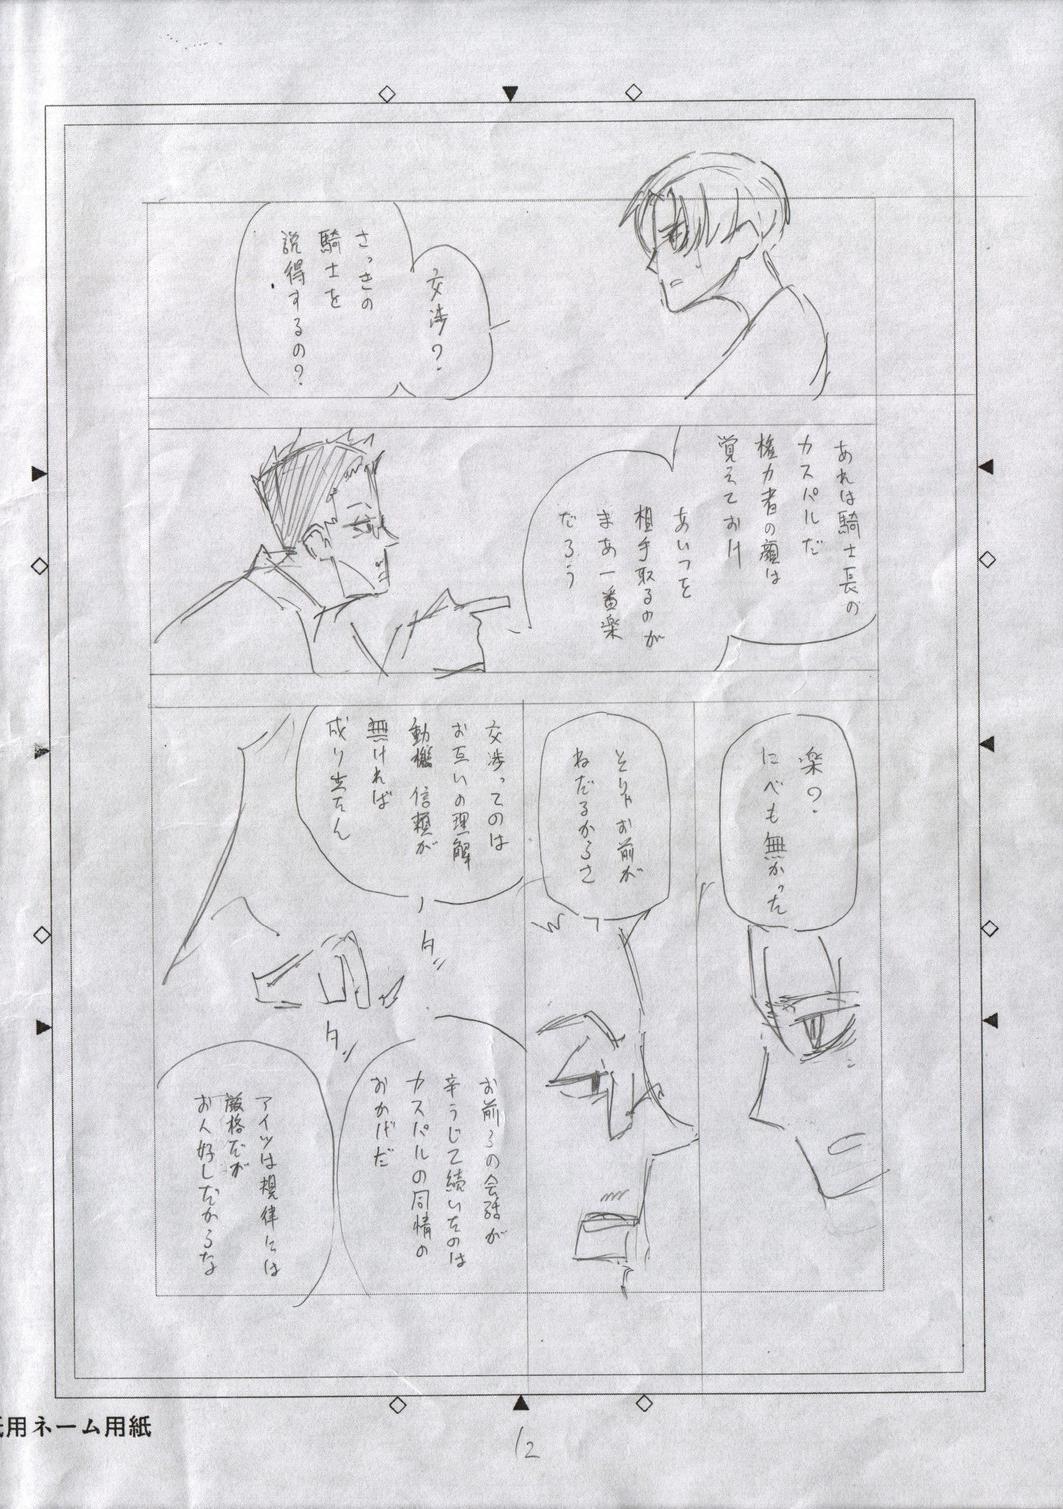 交渉?
さっきの
騎士を
説得するの?
あれは騎士長の
カスパルだ
権力者の顔は
覚えておけ
あいつを
相手取るのが
まあ一番楽
だろう
楽?
にべも無かった
そりゃお前が
ねだるからさ
交渉ってのは
お互いの理解
動機 信頼が
無ければ
成り立たん
タン
タン
お前らの会話が
辛うじて続いたのは
カスパルの同情の
おかげだ
アイツは規律には
厳格だが
お人好しだからな
用ネーム用紙
12